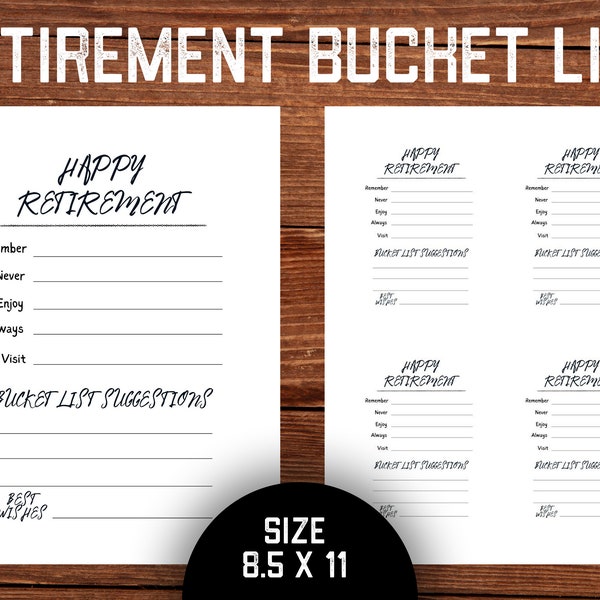 TIREMENT BUCKET LI
HAPPY
RETIREMENT
mber
Never
Enjoy
ways
Visit
BUCKET LIST SUGGESTIONS
BEST
WISHES
HAPPY
RETIREMENT
Remember
Never
Enjoy
Always
Visit
BUCKET LIST SUGGESTIONS
BEST
WISHES
HAPPY
RETIREMENT
Remember
Never
Enjoy
Always
Visit
BUCKET LIST SUGGESTIONS
BEST
WISHES
HAPPY
RETIREMENT
Remember
Never
Enjoy
Always
Visit
BUCKET LIST SUGGESTIONS
BEST
WISHES
HAPPY
RETIREMENT
Remember
Never
Enjoy
Always
Visit
BUCKET LIST SUGGESTIONS
BEST
WISHES
SIZE
8.5 X 11